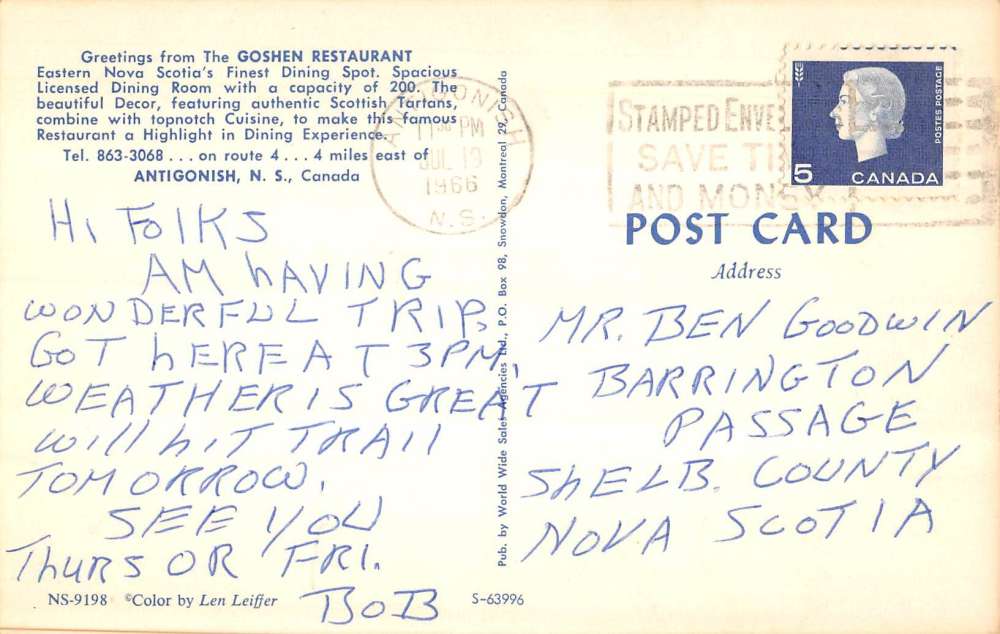 Greetings from The GOSHEN RESTAURANT
Eastern Nova Scotia's Finest Dining Spot. Spacious
Licensed Dining Room with a capacity of 200. The
beautiful Decor, featuring authentic Scottish Tartans,
combine with topnotch Cuisine, to make this famous
Restaurant a Highlight in Dining Experience.
Tel. 863-3068 . . . on route 4 . . . 4 miles east of
ANTIGONISH, N. S., Canada
ANTIGONISH
PM
JUL 13
1966
N.S.
HI FOLKS
AM HAVING
WONDERFUL TRIP.
GOT HERE AT 3PM.
WEATHER IS GREAT
WILL HIT TRAIL
TOMORROW.
SEE YOU
THURS OR FRI.
BOB
NS-9198 ©Color by Len Leiffer
S-63996
Pub. by World Wide Sales Agencies Ltd., P.O. Box 98, Snowdon, Montreal 29, Canada
STAMPED ENVE
SAVE TI
AND MONEY
5 CANADA
POSTES POSTAGE
POST CARD
Address
MR. BEN GOODWIN
BARRINGTON
PASSAGE
SHELB. COUNTY
NOVA SCOTIA